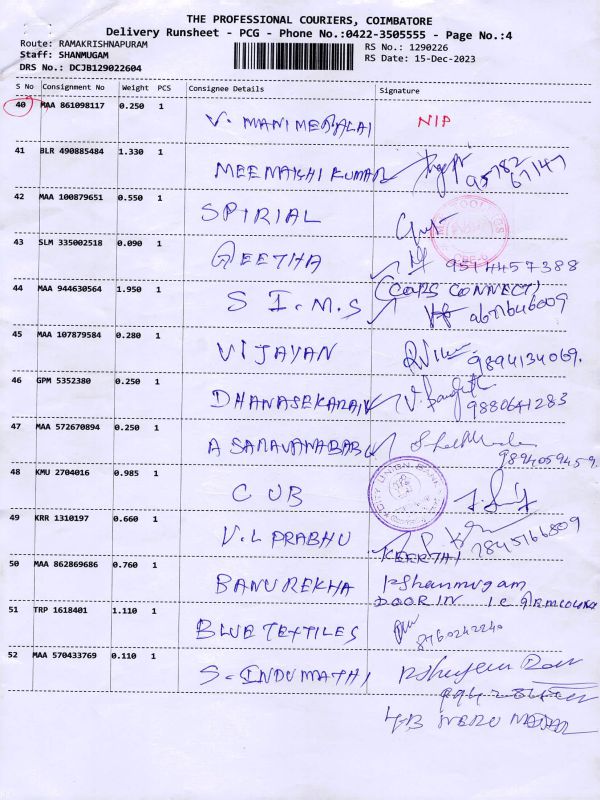 THE PROFESSIONAL COURIERS, COIMBATORE
Delivery Runsheet - PCG - Phone No.:0422-3505555 - Page No.:4
Route: RAMAKRISHNAPURAM
RS No.: 1290226
Staff: SHANMUGAM
RS Date: 15-Dec-2023
DRS No.: DCJB129022604
S No Consignment No Weight PCS Consignee Details Signature
40 MAA 861098117 0.250 1 V. MANIMEGALAI NIP
41 BLR 490885484 1.330 1 MEENAKSHI KUMAR 95782 67147
42 MAA 100879651 0.550 1 SPIRIAL
43 SLM 335002518 0.090 1 GEETHA 9514457388
44 MAA 944630564 1.950 1 S I.M.S (COATS CONNECT)
45 MAA 107879584 0.280 1 VIJAYAN 9894134069.
46 GPM 5352380 0.250 1 DHANASEKARAN 9880641283
47 MAA 572670894 0.250 1 A SARAVANABABU 9894059459.
48 KMU 2704016 0.985 1 CUB
CITY UNION BANK
49 KRR 1310197 0.660 1 V.L PRABHU KEERTHI 7845166809
50 MAA 862869686 0.760 1 BANUREKHA Pshanmugam
DOOR IN
51 TRP 1618401 1.110 1 BLUE TEXTILES 8760242240
52 MAA 570433769 0.110 1 S. INDUMATHI